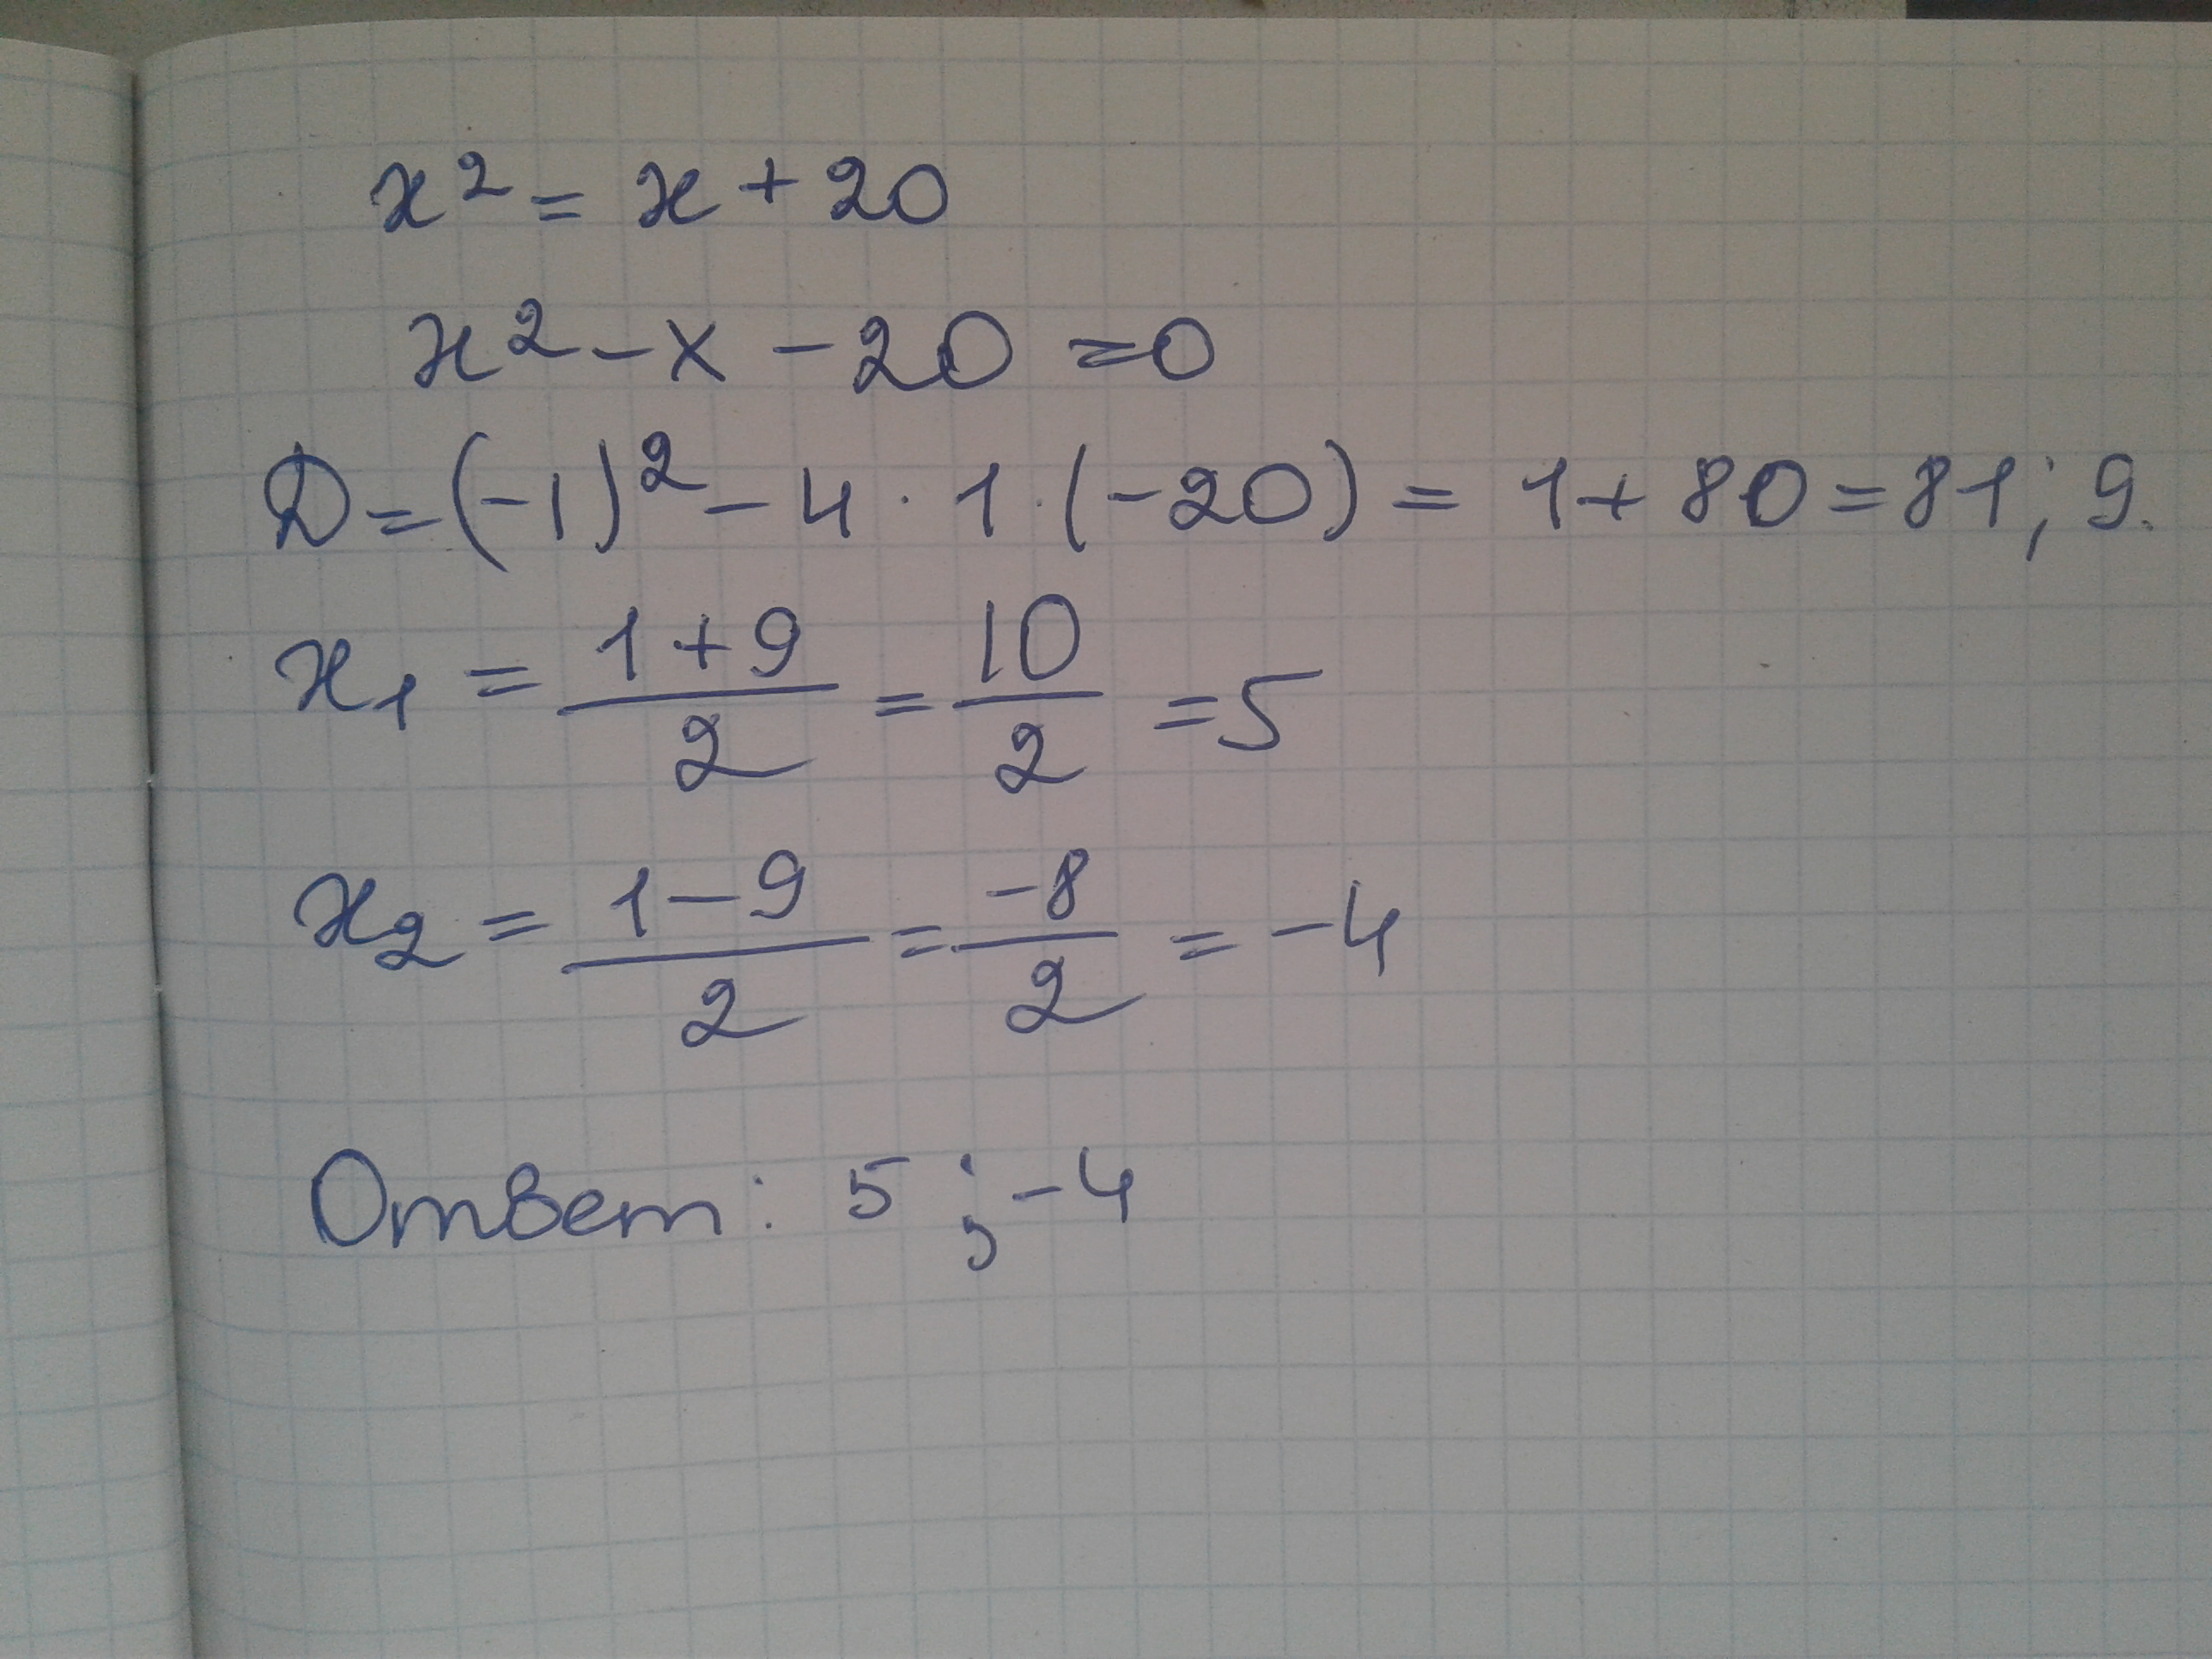 x² = x + 20
x² - x - 20 = 0
D = (-1)² - 4 · 1 · (-20) = 1 + 80 = 81; 9.
x₁ = (1+9)/2 = 10/2 = 5
x₂ = (1-9)/2 = -8/2 = -4
Ответ: 5 ; -4